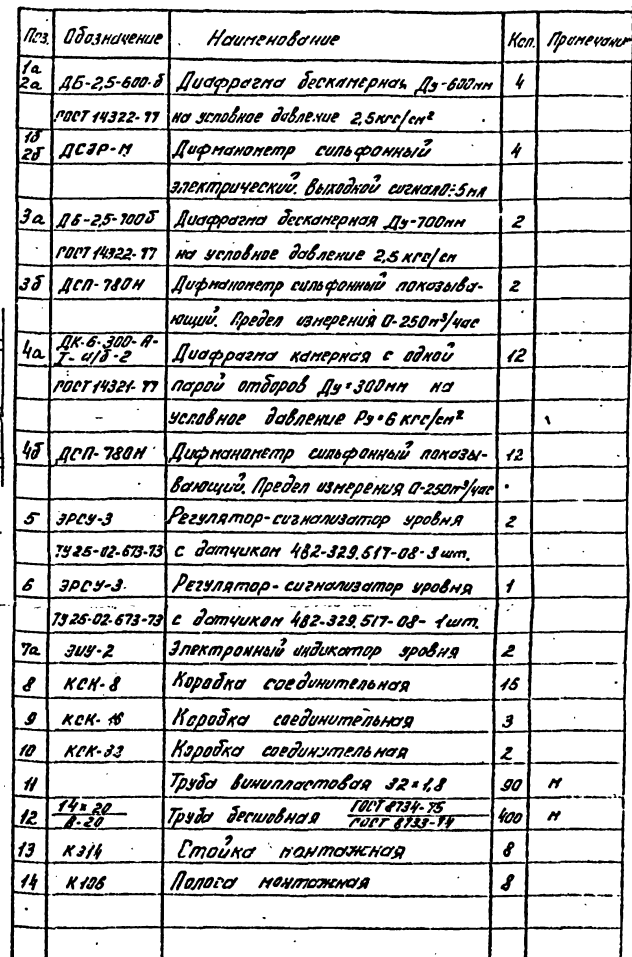 Поз. Обозначение Наименование Кол. Примечание
1а
2а ДБ-2,5-600-б Диафрагма бескамерная Ду-600мм 4
ГОСТ 14322-77 на условное давление 2,5 кгс/см²
1б
2б ДСЭР-М Дифманометр сильфонный 4
электрический. Выходной сигнал 0÷5мА
3а ДБ-2,5-700б Диафрагма бескамерная Ду-700мм 2
ГОСТ 14322-77 на условное давление 2,5 кгс/см
3б ДСП-780Н Дифманометр сильфонный показыва- 2
ющий. Предел измерения 0-250м³/час
4а ДК-6-300-А- Диафрагма камерная с одной 12
I-а/б-2
ГОСТ 14321-77 парой отборов Ду=300мм на
условное давление Ру=6 кгс/см²
4б ДСП-780Н Дифманометр сильфонный показы- 12
вающий. Предел измерения 0-250м³/час
5 ЭРСУ-3 Регулятор-сигнализатор уровня 2
ТУ25-02-673-73 с датчиком 482-329.517-08-3шт.
6 ЭРСУ-3. Регулятор-сигнализатор уровня 1
ТУ25-02-673-73 с датчиком 482-329.517-08-1шт.
7а ЭИУ-2 Электронный индикатор уровня 2
8 КСК-8 Коробка соединительная 15
9 КСК-16 Коробка соединительная 3
10 КСК-33 Коробка соединительная 2
11 Труба винипластовая 32×1,8 90 м
12 14×20 / В-20 Труба бесшовная ГОСТ 8734-75 / ГОСТ 8733-74 400 м
13 К314 Стойка монтажная 8
14 К106 Полоса монтажная 8